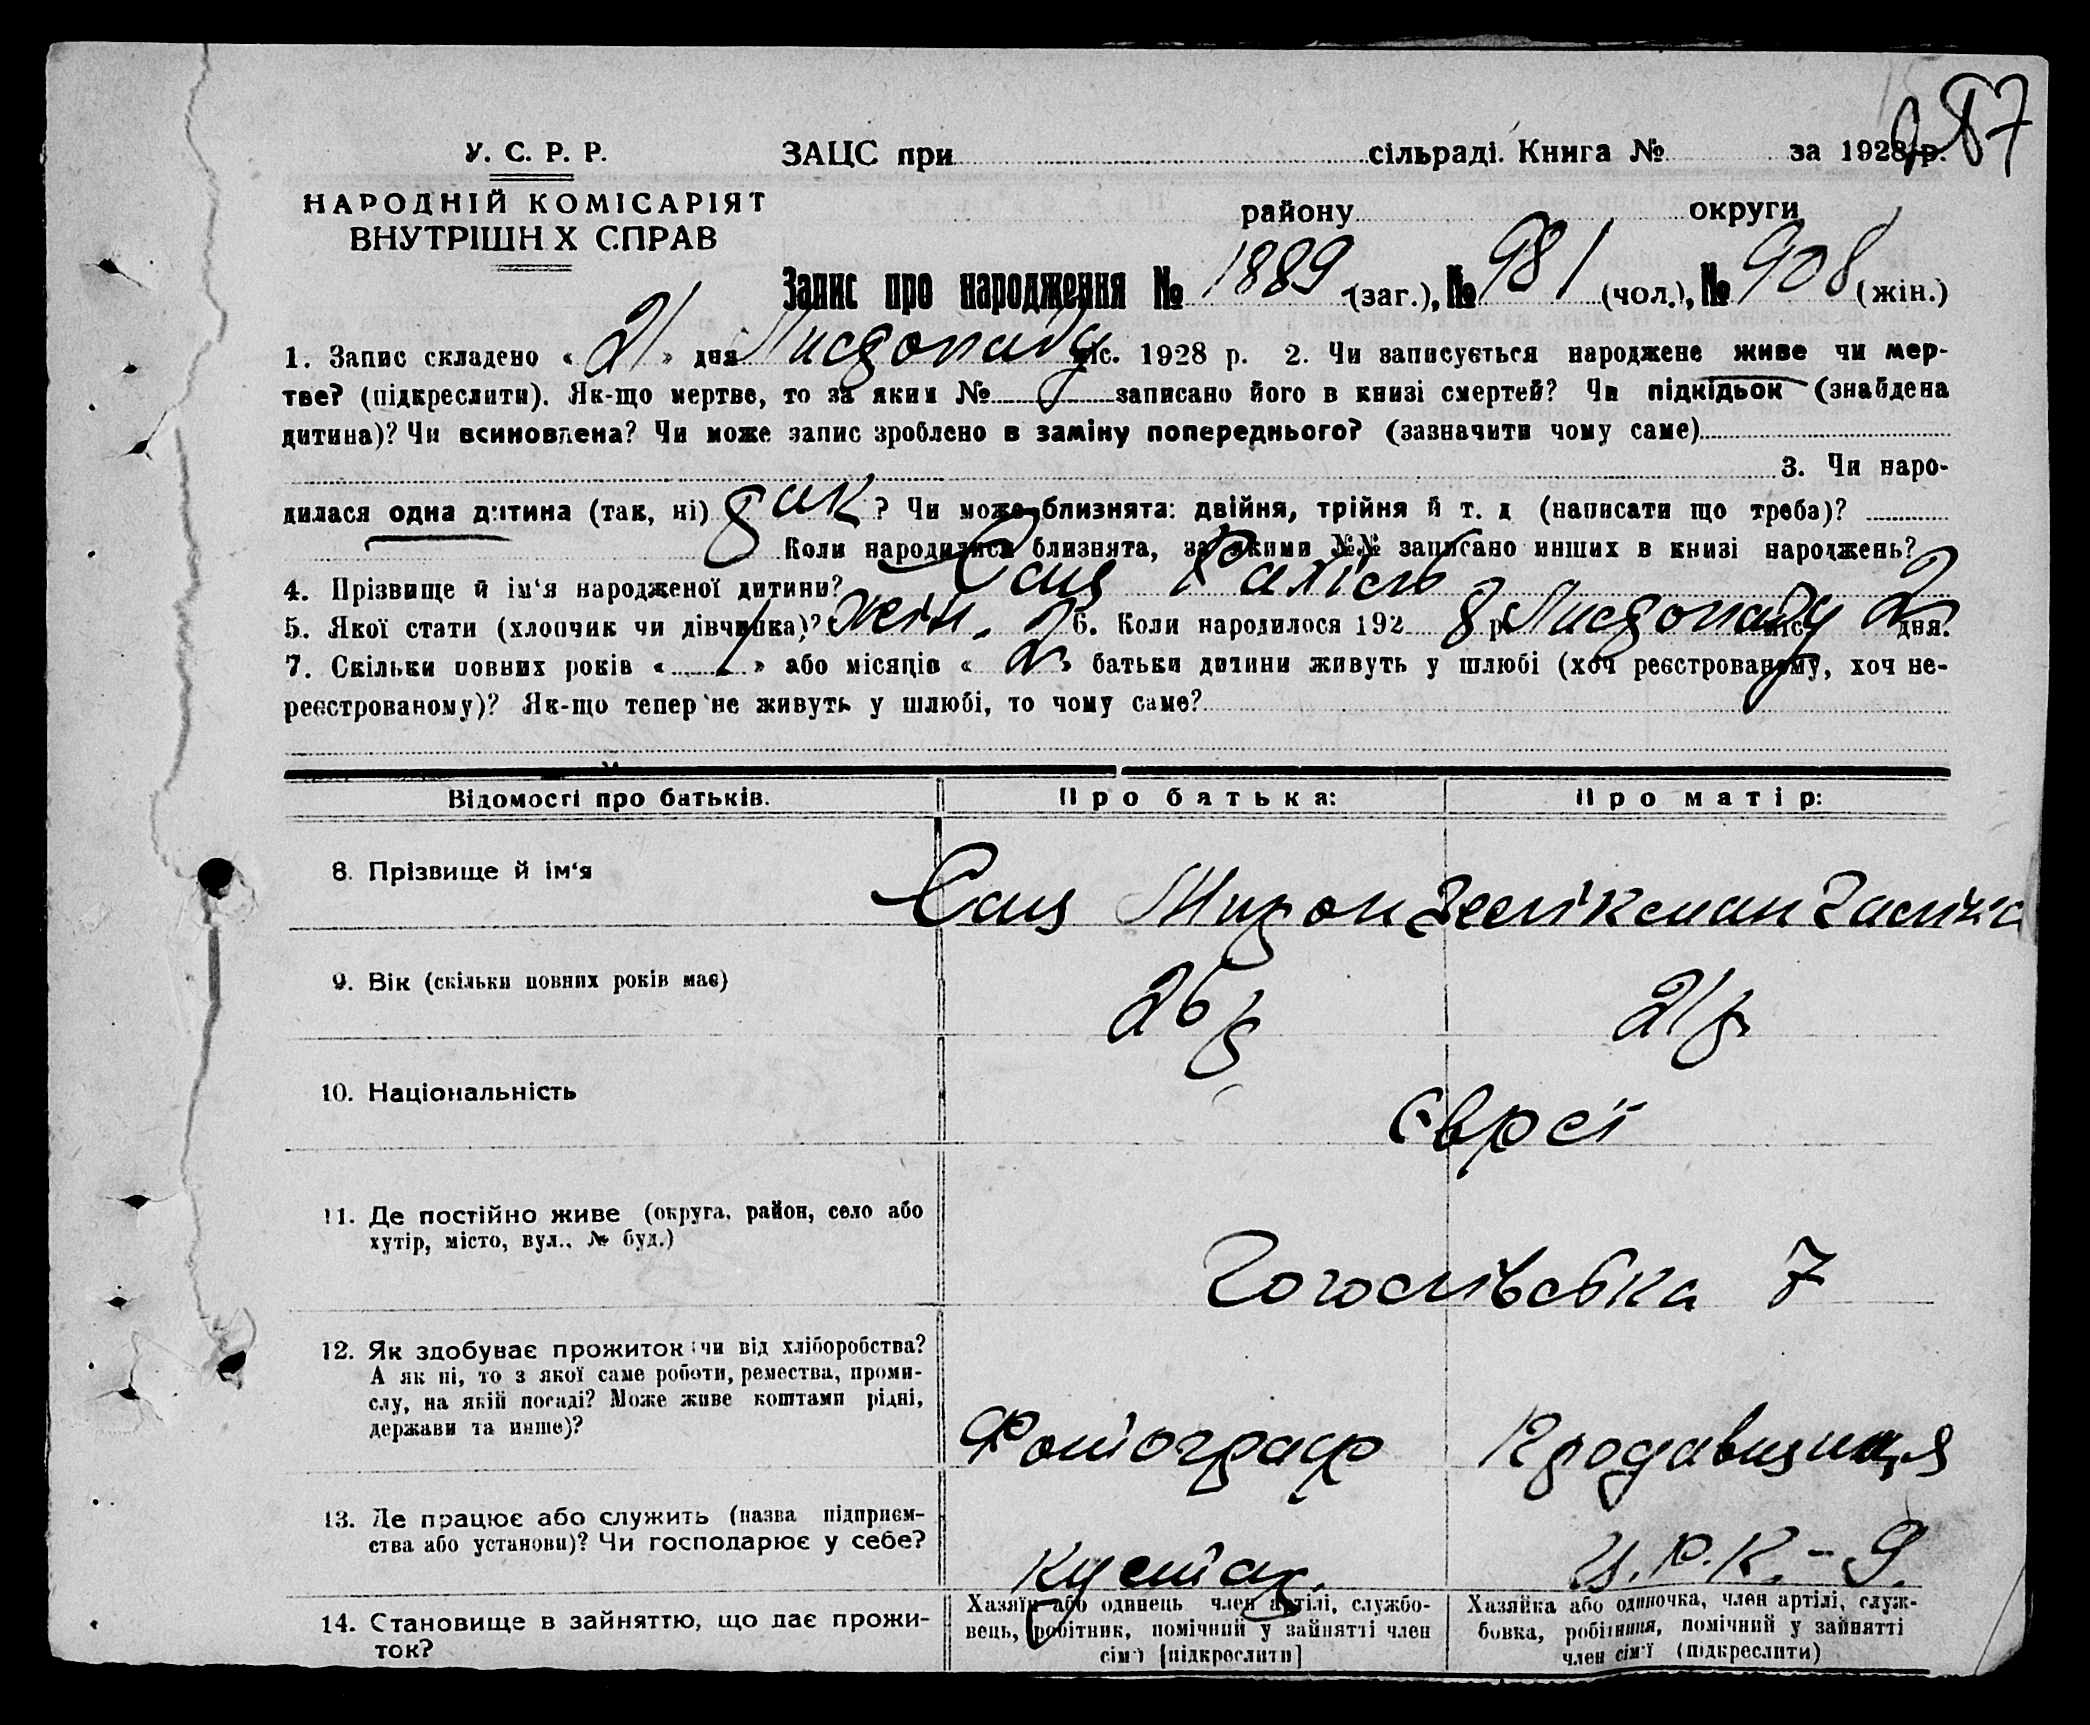 987
У. С. Р. Р. ЗАЦС при сільраді. Книга № за 1928 р.
НАРОДНІЙ КОМІСАРІЯТ
ВНУТРІШН Х СПРАВ
району округи
Запис про народження № 1889 (заг.), № 981 (чол.), № 908 (жін.)
1. Запис складено « 21 » дня Листопаду міс. 1928 р. 2. Чи записується народжене живе чи мер-
тве? (підкреслити). Як-що мертве, то за яким № записано його в книзі смертей? Чи підкідьок (знайдена
дитина)? Чи всиновлена? Чи може запис зроблено в заміну попереднього? (зазначити чому саме)
3. Чи наро-
дилася одна дитина (так, ні) так ? Чи може близнята: двійня, трійня й т. д (написати що треба)?
Коли народилися близнята, за якими №№ записано инших в книзі народжень?
4. Прізвище й ім‘я народженої дитини? Сац Рахіль
5. Якої стати (хлопчик чи дівчинка)? жін. 6. Коли народилося 192 8 р Листопаду міс 2 дня.
7. Скільки повних років « 1 » або місяців « 2 » батьки дитини живуть у шлюбі (хоч реєстрованому, хоч не-
реєстрованому)? Як-що тепер не живуть у шлюбі, то чому саме?
Відомості про батьків. Про батька: Про матір:
8. Прізвище й ім‘я Сац Мирон
9. Вік (скільки повних років має) 26 р 21 р
10. Національність євреї
11. Де постійно живе (округа, район, село або
хутір, місто, вул., № буд.)
Гоголівська 7
12. Як здобуває прожиток (чи від хліборобства?
А як ні, то з якої саме роботи, ремества, проми-
слу, на якій посаді? Може живе коштами рідні,
держави та инше)?
Фотограф Продавщиця
13. Де працює або служить (назва підприєм-
ства або установи)? Чи господарює у себе?
Кустар. Ц.Р.К.-9.
14. Становище в зайняттю, що дає прожи-
ток?
Хазяїн або одинець член артілі, службо-
вець, робітник, помічний у зайнятті член
сім‘ї [підкреслити]
Хазяйка або одиночка, член артілі, служ-
бовка, робітниця, помічний у зайнятті
член сім‘ї (підкреслити)